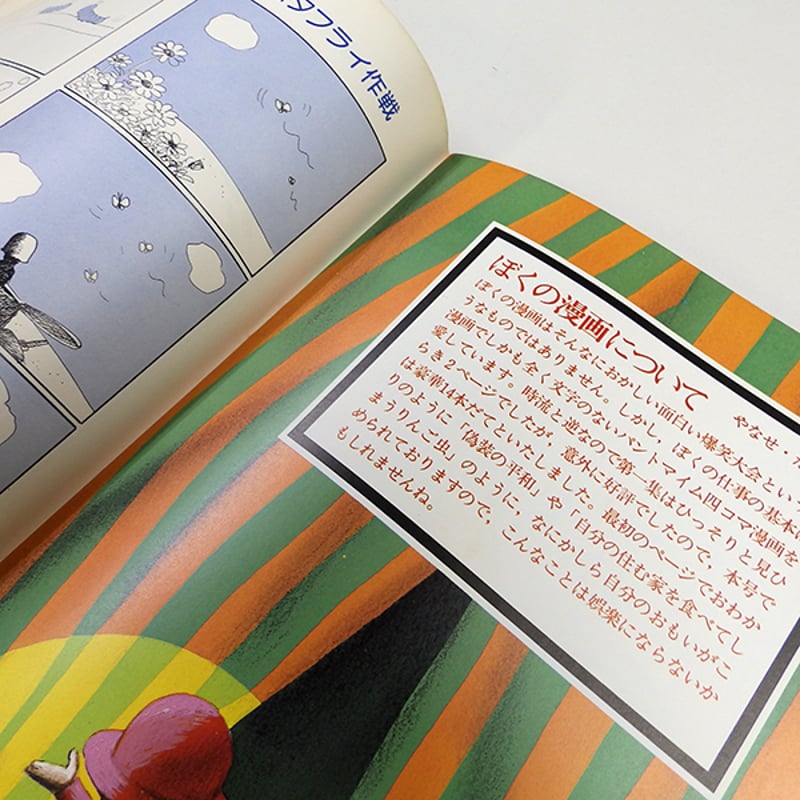 タフライ作戦
ぼくの漫画について
やなせ・
ぼくの漫画はそんなにおかしい面白い爆笑大会というよ
うなものではありません。しかし、ぼくの仕事の基本は
漫画でしかも全く文字のないパントマイム四コマ漫画を
愛しています。時流と逆なので第一集はひっそりと見ひ
らき2ページでしたが、意外に好評でしたので、本号で
は豪華14本だてといたしました。最初のページでおわか
りのように「偽装の平和」や「自分の住む家を食べてし
まうりんご虫」のように、なにかしら自分のおもいがこ
められておりますので、こんなことは娯楽にならないか
もしれませんね。